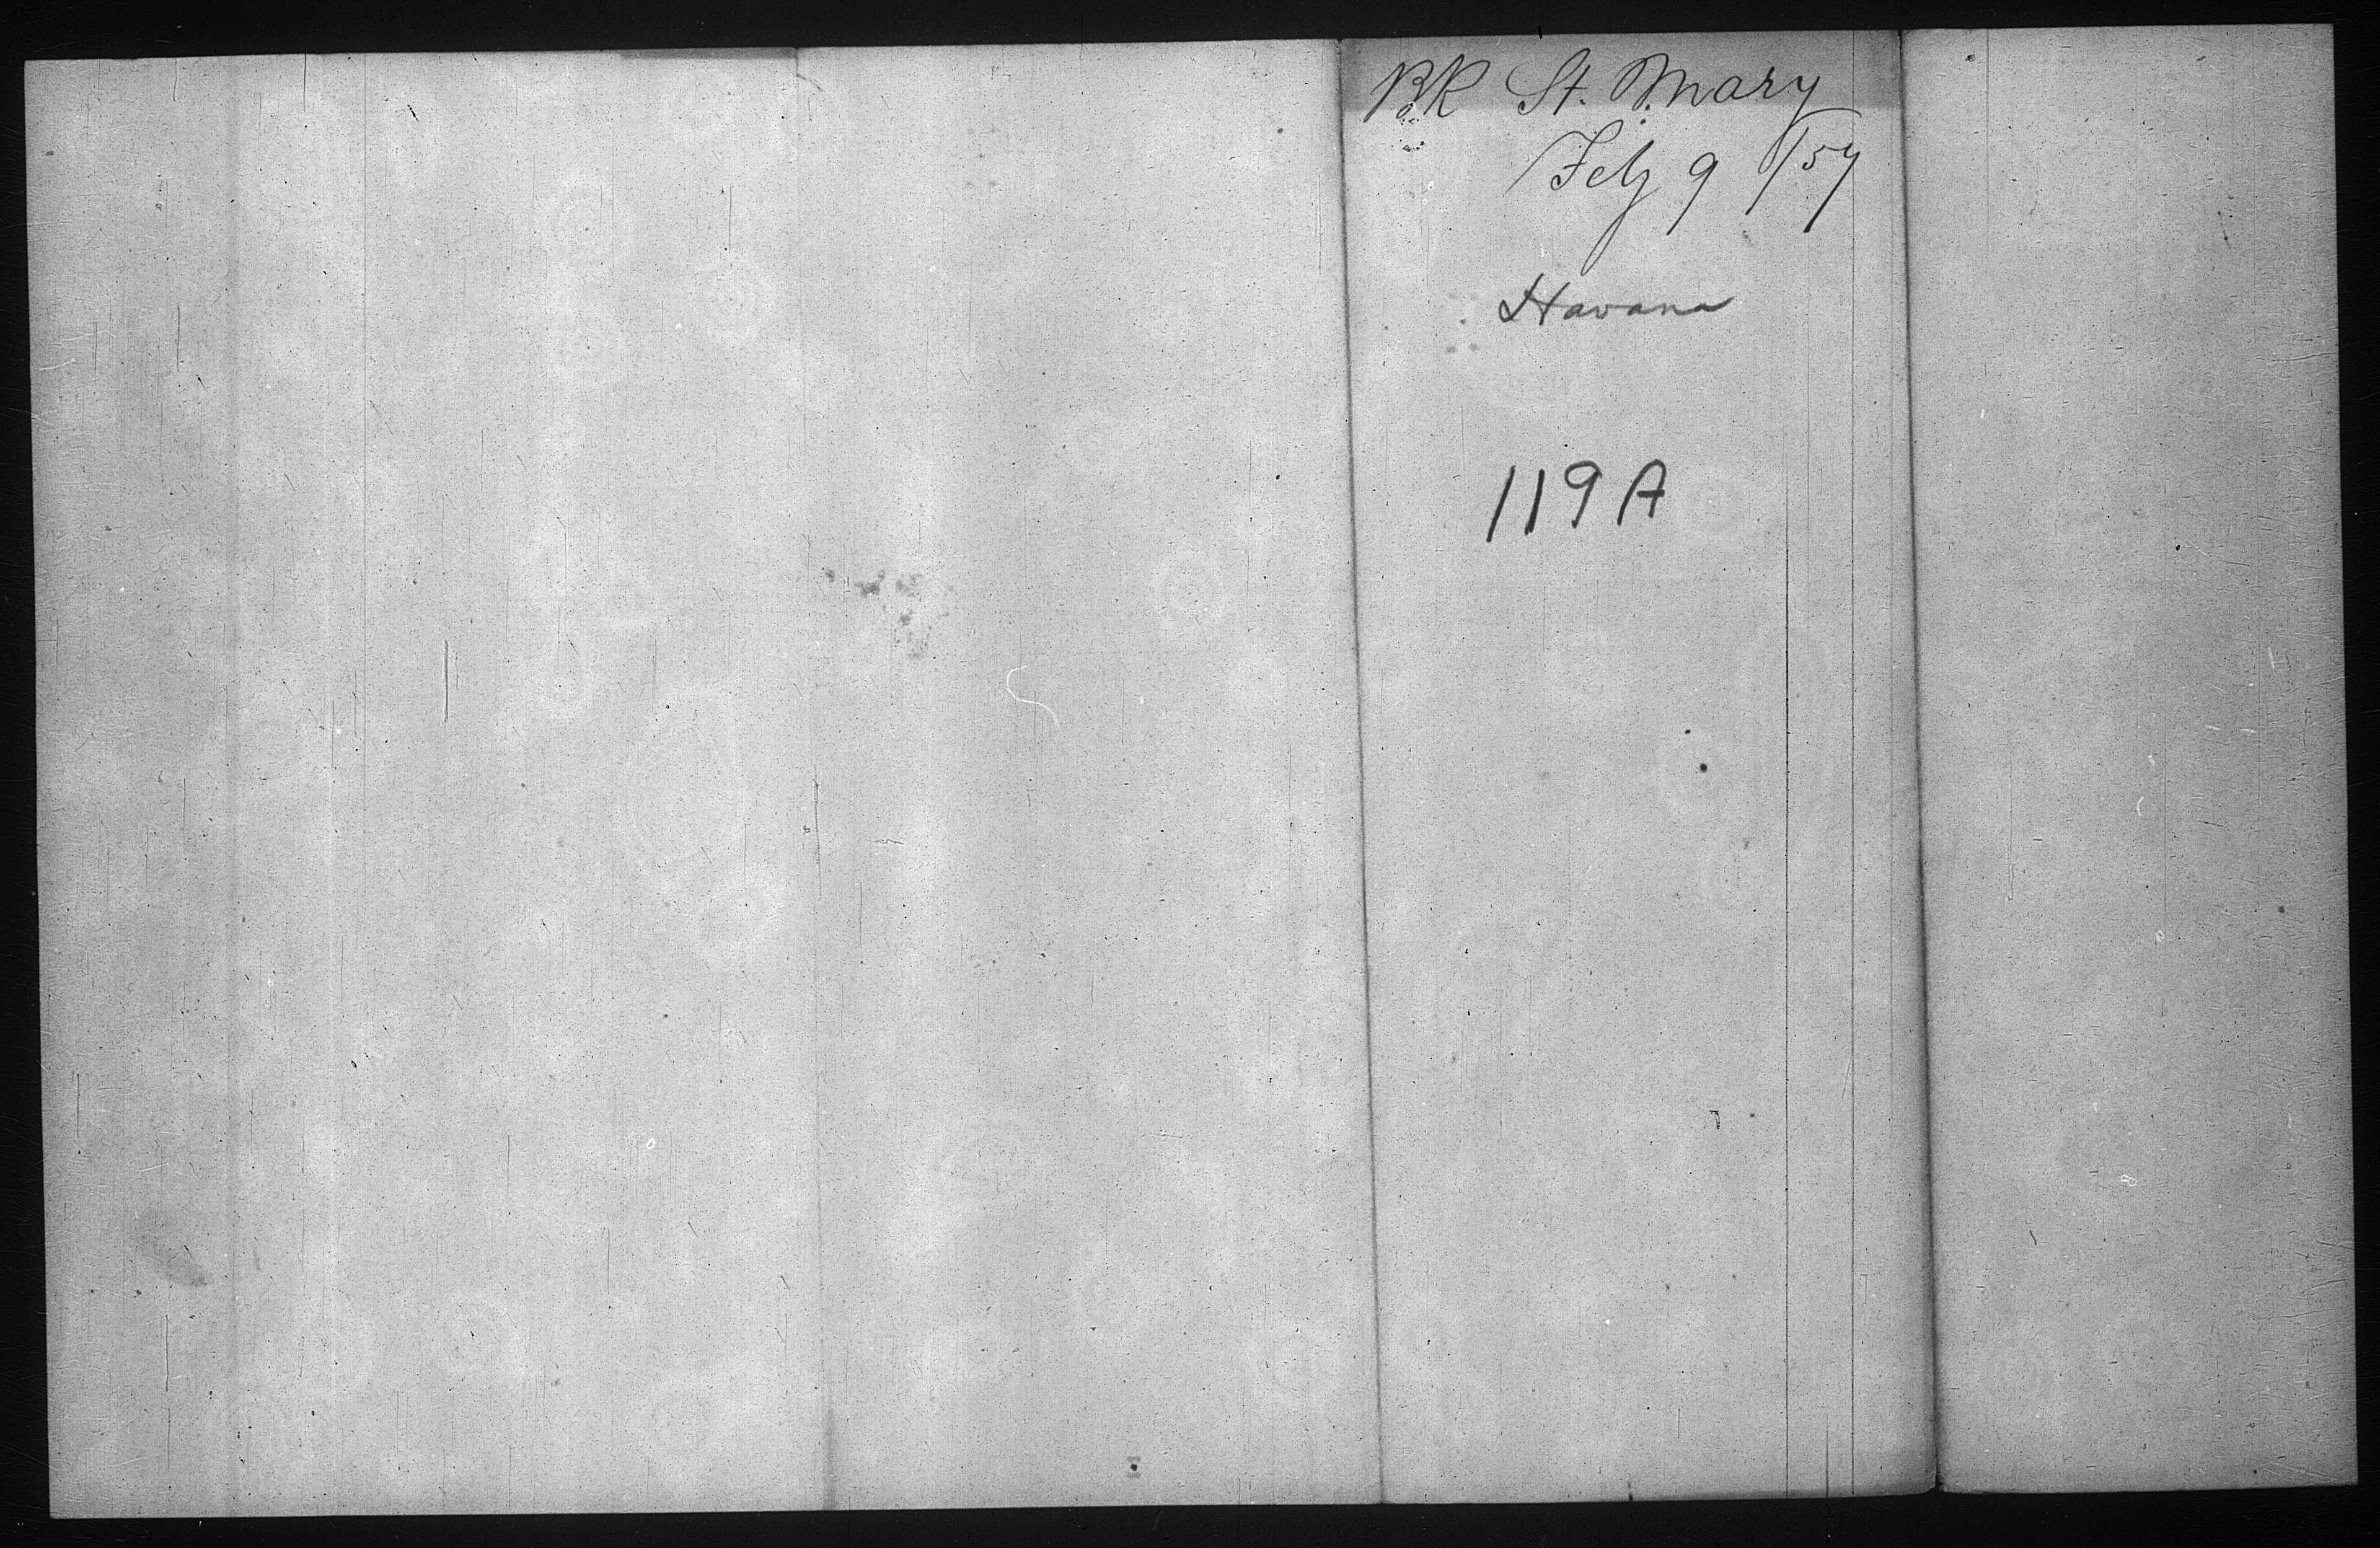 BK St. Mary
Feb 9 /57
Havana
119 A